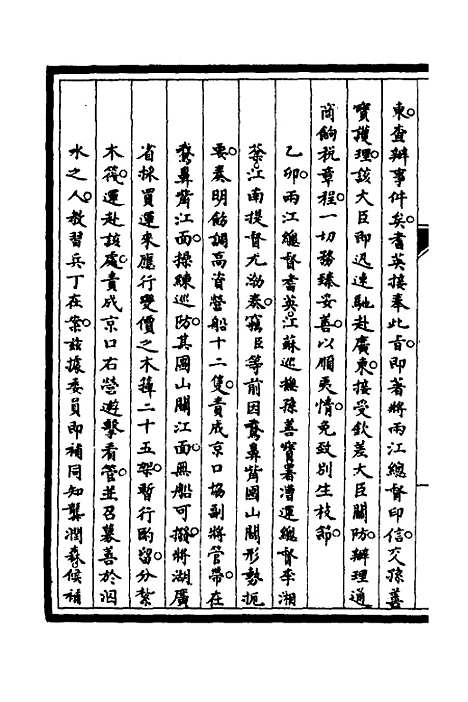 東查辦事件矣耆英接奉此旨即著將兩江總督印信交孫善
寶護理該大臣即迅速馳赴廣東接受欽差大臣關防辦理通
商餉稅章程一切務臻妥善以順夷情免致別生枝節
乙卯兩江總督耆英江蘇巡撫孫善寶署漕運總督李湘
棻江南提督尤渤奏竊臣等前因鵞鼻嘴圌山關形勢扼
要奏明飭調高省營船十二隻責成京口協副將管帶在
鵞鼻嘴江面操練巡防其圌山關江面無船可撥將湖廣
省採買運來應行變價之木簰二十五架暫行酌留分紮
木筏運赴該處責成京口右營遊擊看管並召募善於泅
水之人教習兵丁在案茲據委員即補同知龔潤森候補